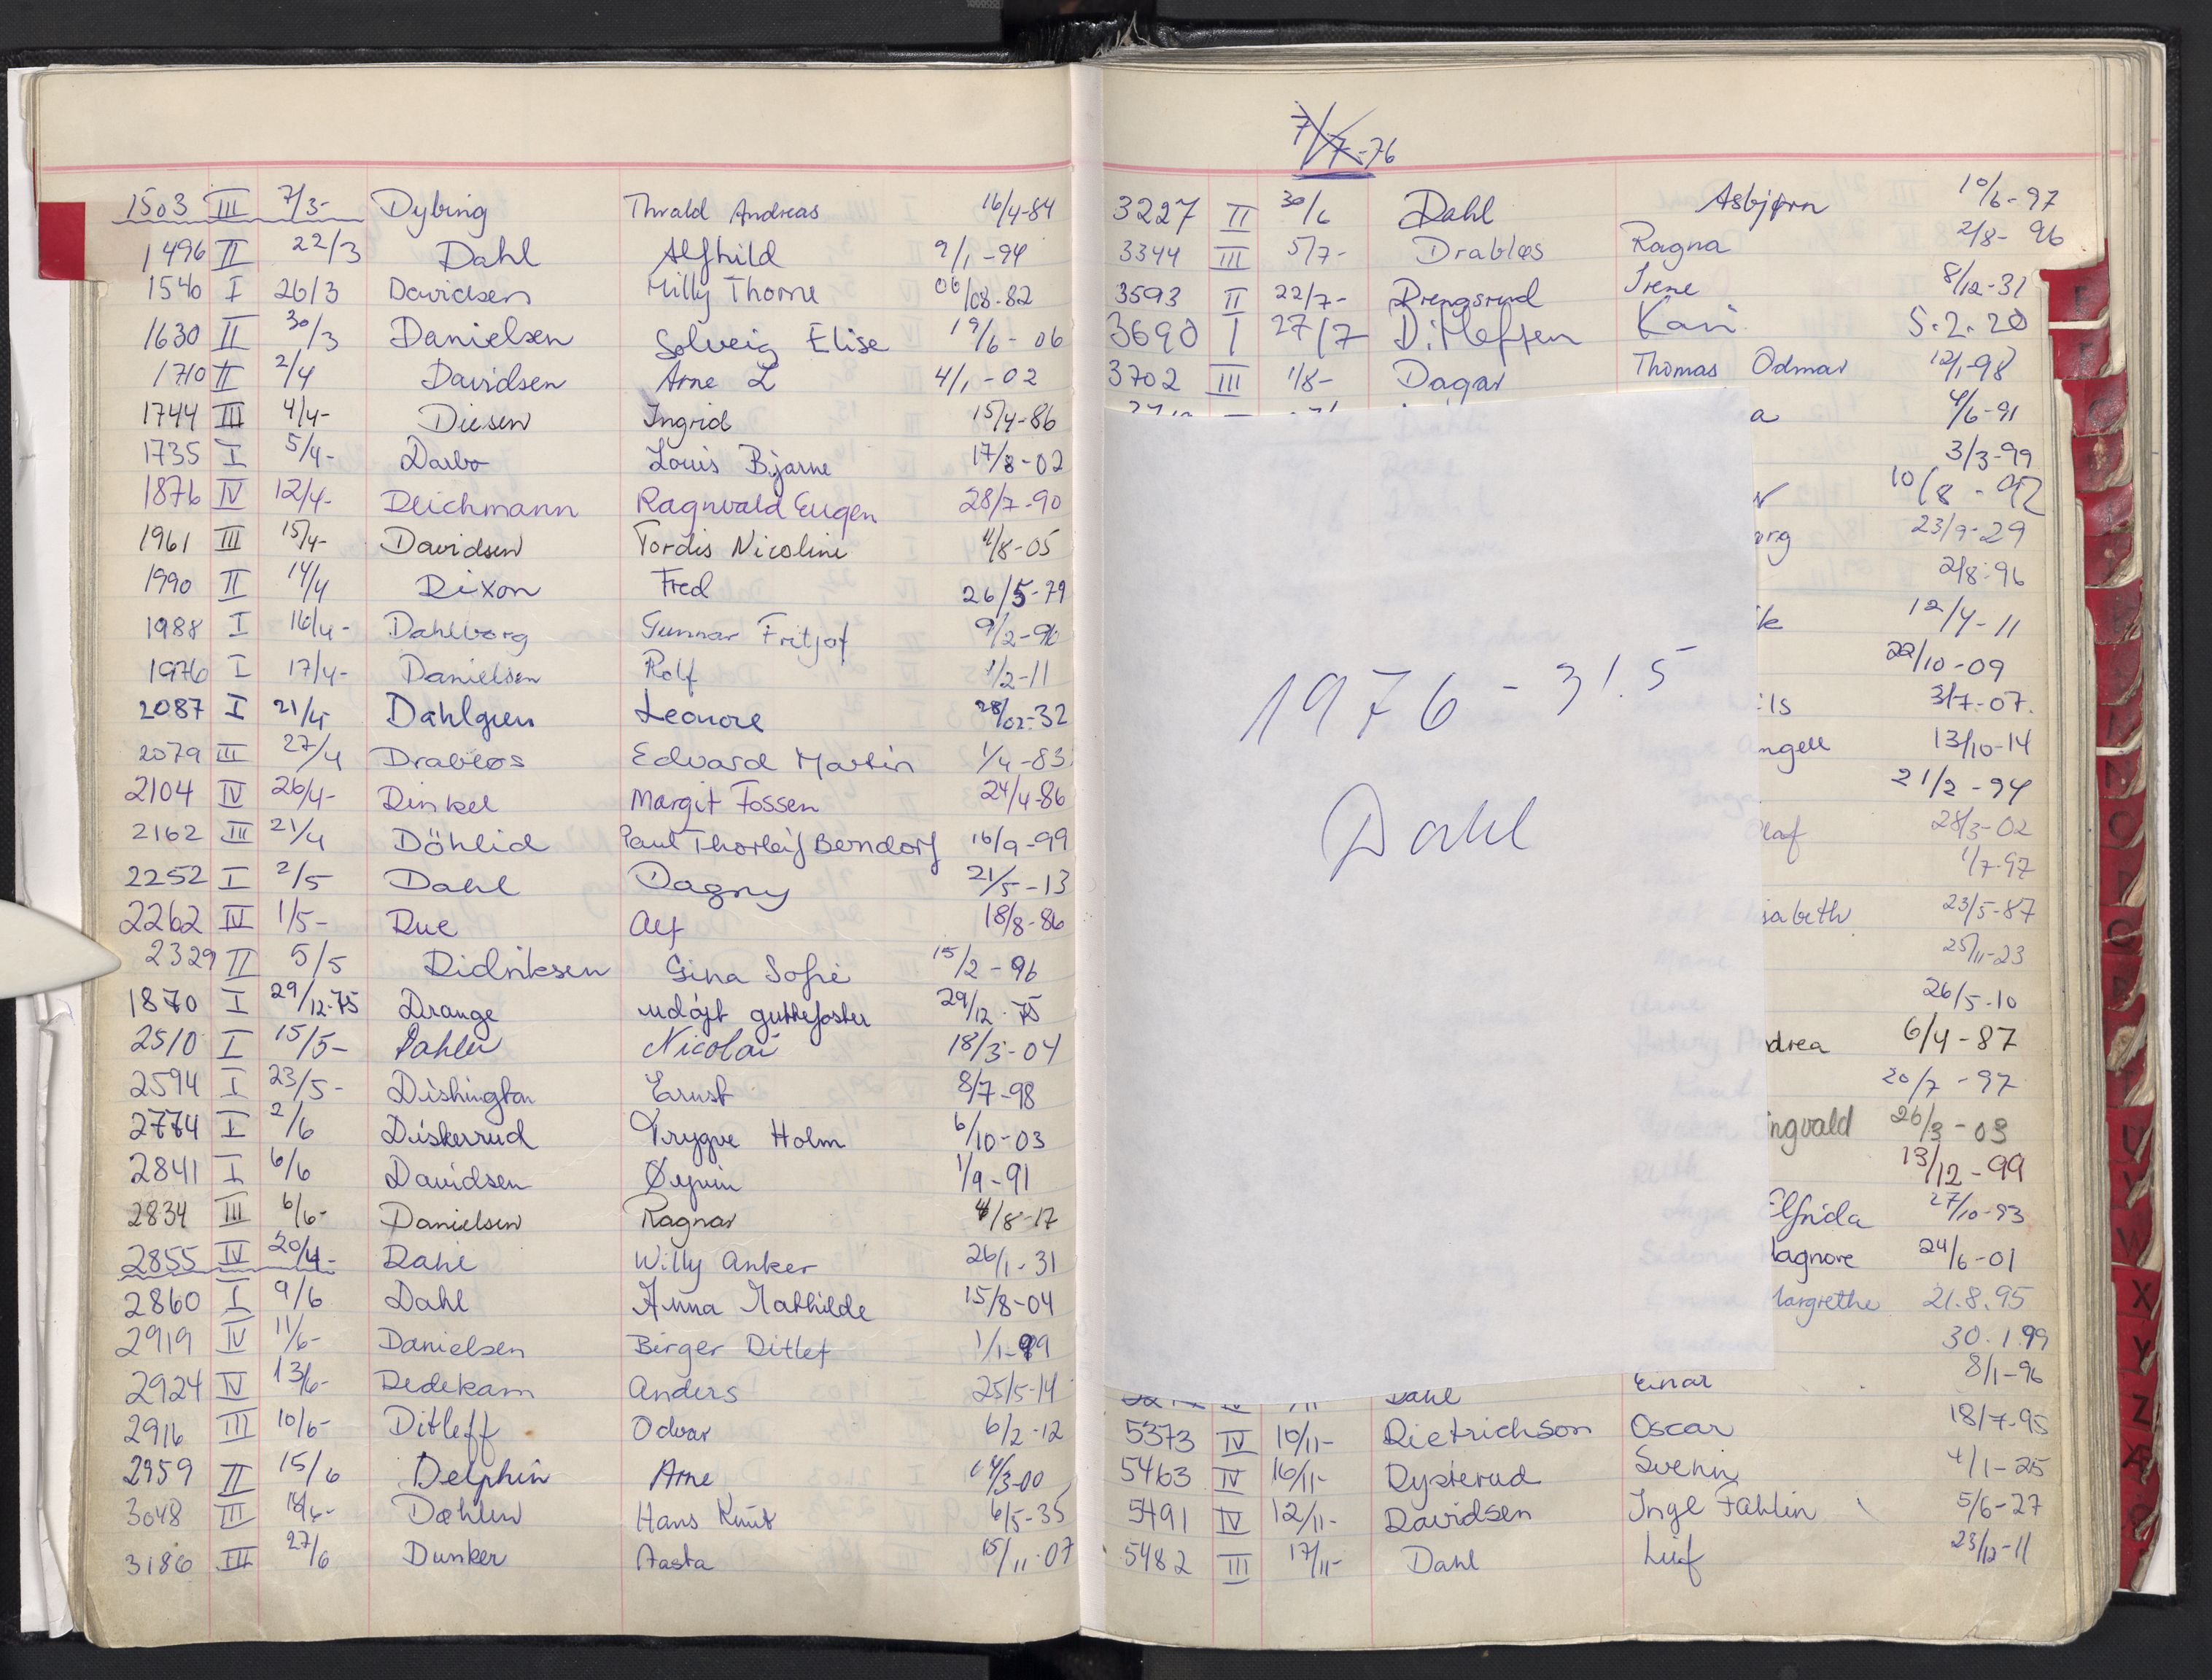 1503 III 7/3- Dybing Thvald Andreas 16/4-84
1496 II 22/3 Dahl Alfhild 9/1-94
1540 I 26/3 Davidsen Milly Thorne 06/08-82
1630 II 30/3 Danielsen Solveig Elise 19/6-06
1710 II 2/4 Davidsen Arne L 4/1-02
1744 III 4/4- Diesen Ingrid 15/4-86
1735 I 5/4- Darbo Louis Bjarne 17/8-02
1876 IV 12/4- Deichmann Ragnvald Eugen 28/7-90
1961 III 15/4- Davidsen Tordis Nicoline 4/8-05
1990 II 14/4 Dixon Fred 26/5-79
1988 I 16/4- Dahlborg Gunnar Fritjof 9/2-96
1976 I 17/4- Danielsen Rolf 1/2-11
2087 I 21/4 Dahlgren Leonore 28/02-32
2079 III 27/4 Drabløs Edvard Martin 1/4-83
2104 IV 26/4- Dinkel Margit Fossen 24/4-86
2162 III 21/4 Döhlid Paul Thorleif Berndorf 16/9-99
2252 I 2/5 Dahl Dagny 21/5-13
2262 IV 1/5- Due Alf 18/8-86
2329 II 5/5 Didriksen Gina Sofie 15/2-96
1870 I 29/12-75 Drange udøpt guttefoster 29/12-75
2510 I 15/5- Dahler Nicolai 18/3-04
2594 I 23/5- Dishington Ernst 8/7-98
2774 I 2/6 Diskerud Trygve Holm 6/10-03
2841 I 6/6 Davidsen Øyvin 1/9-91
2834 III 6/6- Danielsen Ragnar 4/8-17
2855 IV 20/4- Dahl Willy Anker 26/1-31
2860 I 9/6 Dahl Anna Mathilde 15/8-04
2919 IV 11/6- Danielsen Birger Ditlef 1/1-99
2924 IV 13/6- Dedekam Anders 25/5-14
2916 III 10/6- Ditleff Odvar 6/2-12
2959 II 15/6 Delphin Arne 04/3-00
3048 III 18/6- Dæhlen Hans Knut 6/5-35
3186 III 27/6 Dunker Aasta 15/11-07
7/7-76
3227 II 30/6 Dahl Asbjørn 10/6-97
3344 III 5/7- Drabløs Ragna 2/8-96
3593 II 22/7- Drengsrud Irene 8/12-31
3690 I 27/7 Ditlefsen Kari 5.2.20
3702 III 1/8- Dagar Thomas Odmar 12/1-98
a 4/6-91
3/3-99
10/8-92
org 23/9-29
2/8-96
k 12/4-11
22/10-09
ils 3/7-07.
1976-31.5
ngell 13/10-14
21/2-94
Dahl
laf 28/3-02
1/7-97
sabeth 23/5-87
25/11-23
26/5-10
drea 6/4-87
20/7-97
ngvald 26/3-03
13/12-99
Elfrida 27/10-93
Magnore 24/6-01
Margrethe 21.8.95
30.1.99
Dahl Einar 8/1-96
5373 IV 10/11- Dietrichson Oscar 18/7-95
5463 IV 16/11- Dysterud Svein 4/1-25
5491 IV 12/11- Davidsen Inge Fahlin 5/6-27
5482 III 17/11- Dahl Leif 23/12-11
X
Y
Z